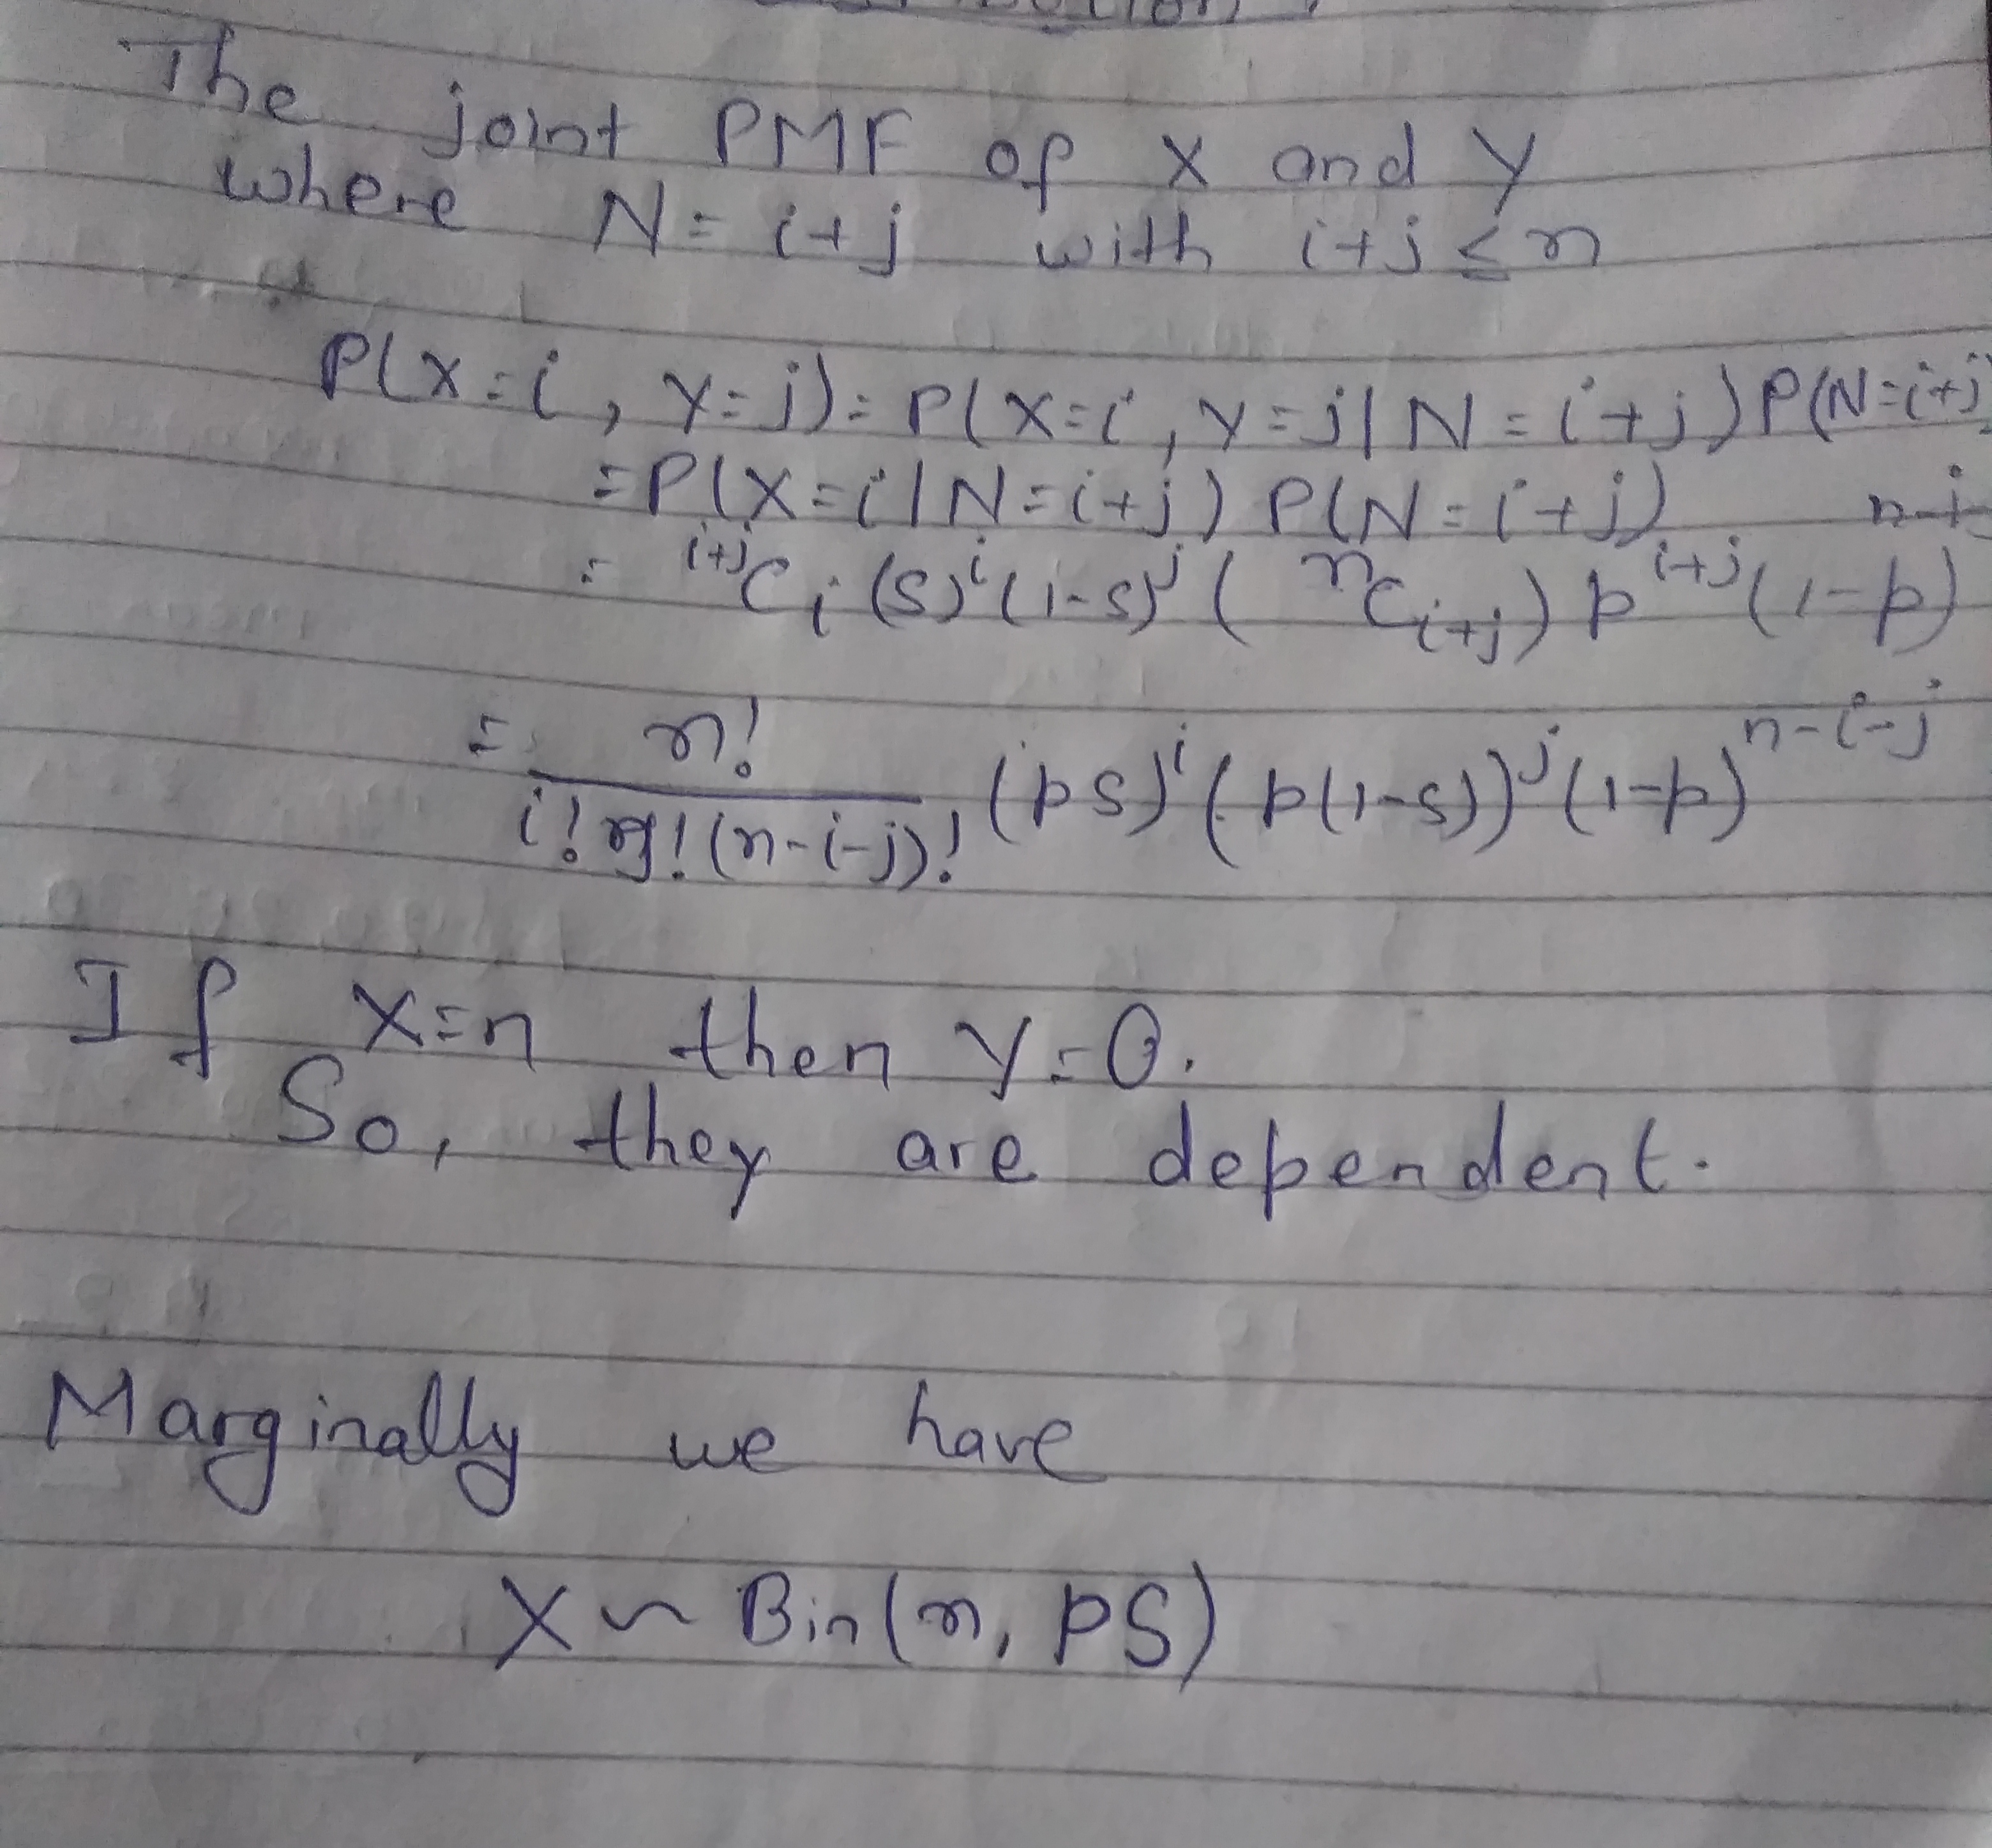 The joint PMF of X and Y
where N = i+j with i+j ≤ n
P(X=i, Y=j) = P(X=i, Y=j | N=i+j) P(N=i+j)
= P(X=i | N=i+j) P(N=i+j)
= ^{i+j}C_i (s)^i (1-s)^j (^nC_{i+j}) p^{i+j} (1-p)^{n-i-
= n! / i! j! (n-i-j)! (ps)^i (p(1-s))^j (1-p)^{n-i-j}
If X=n then Y=0.
So, they are dependent.
Marginally we have
X ~ Bin(n, pS)